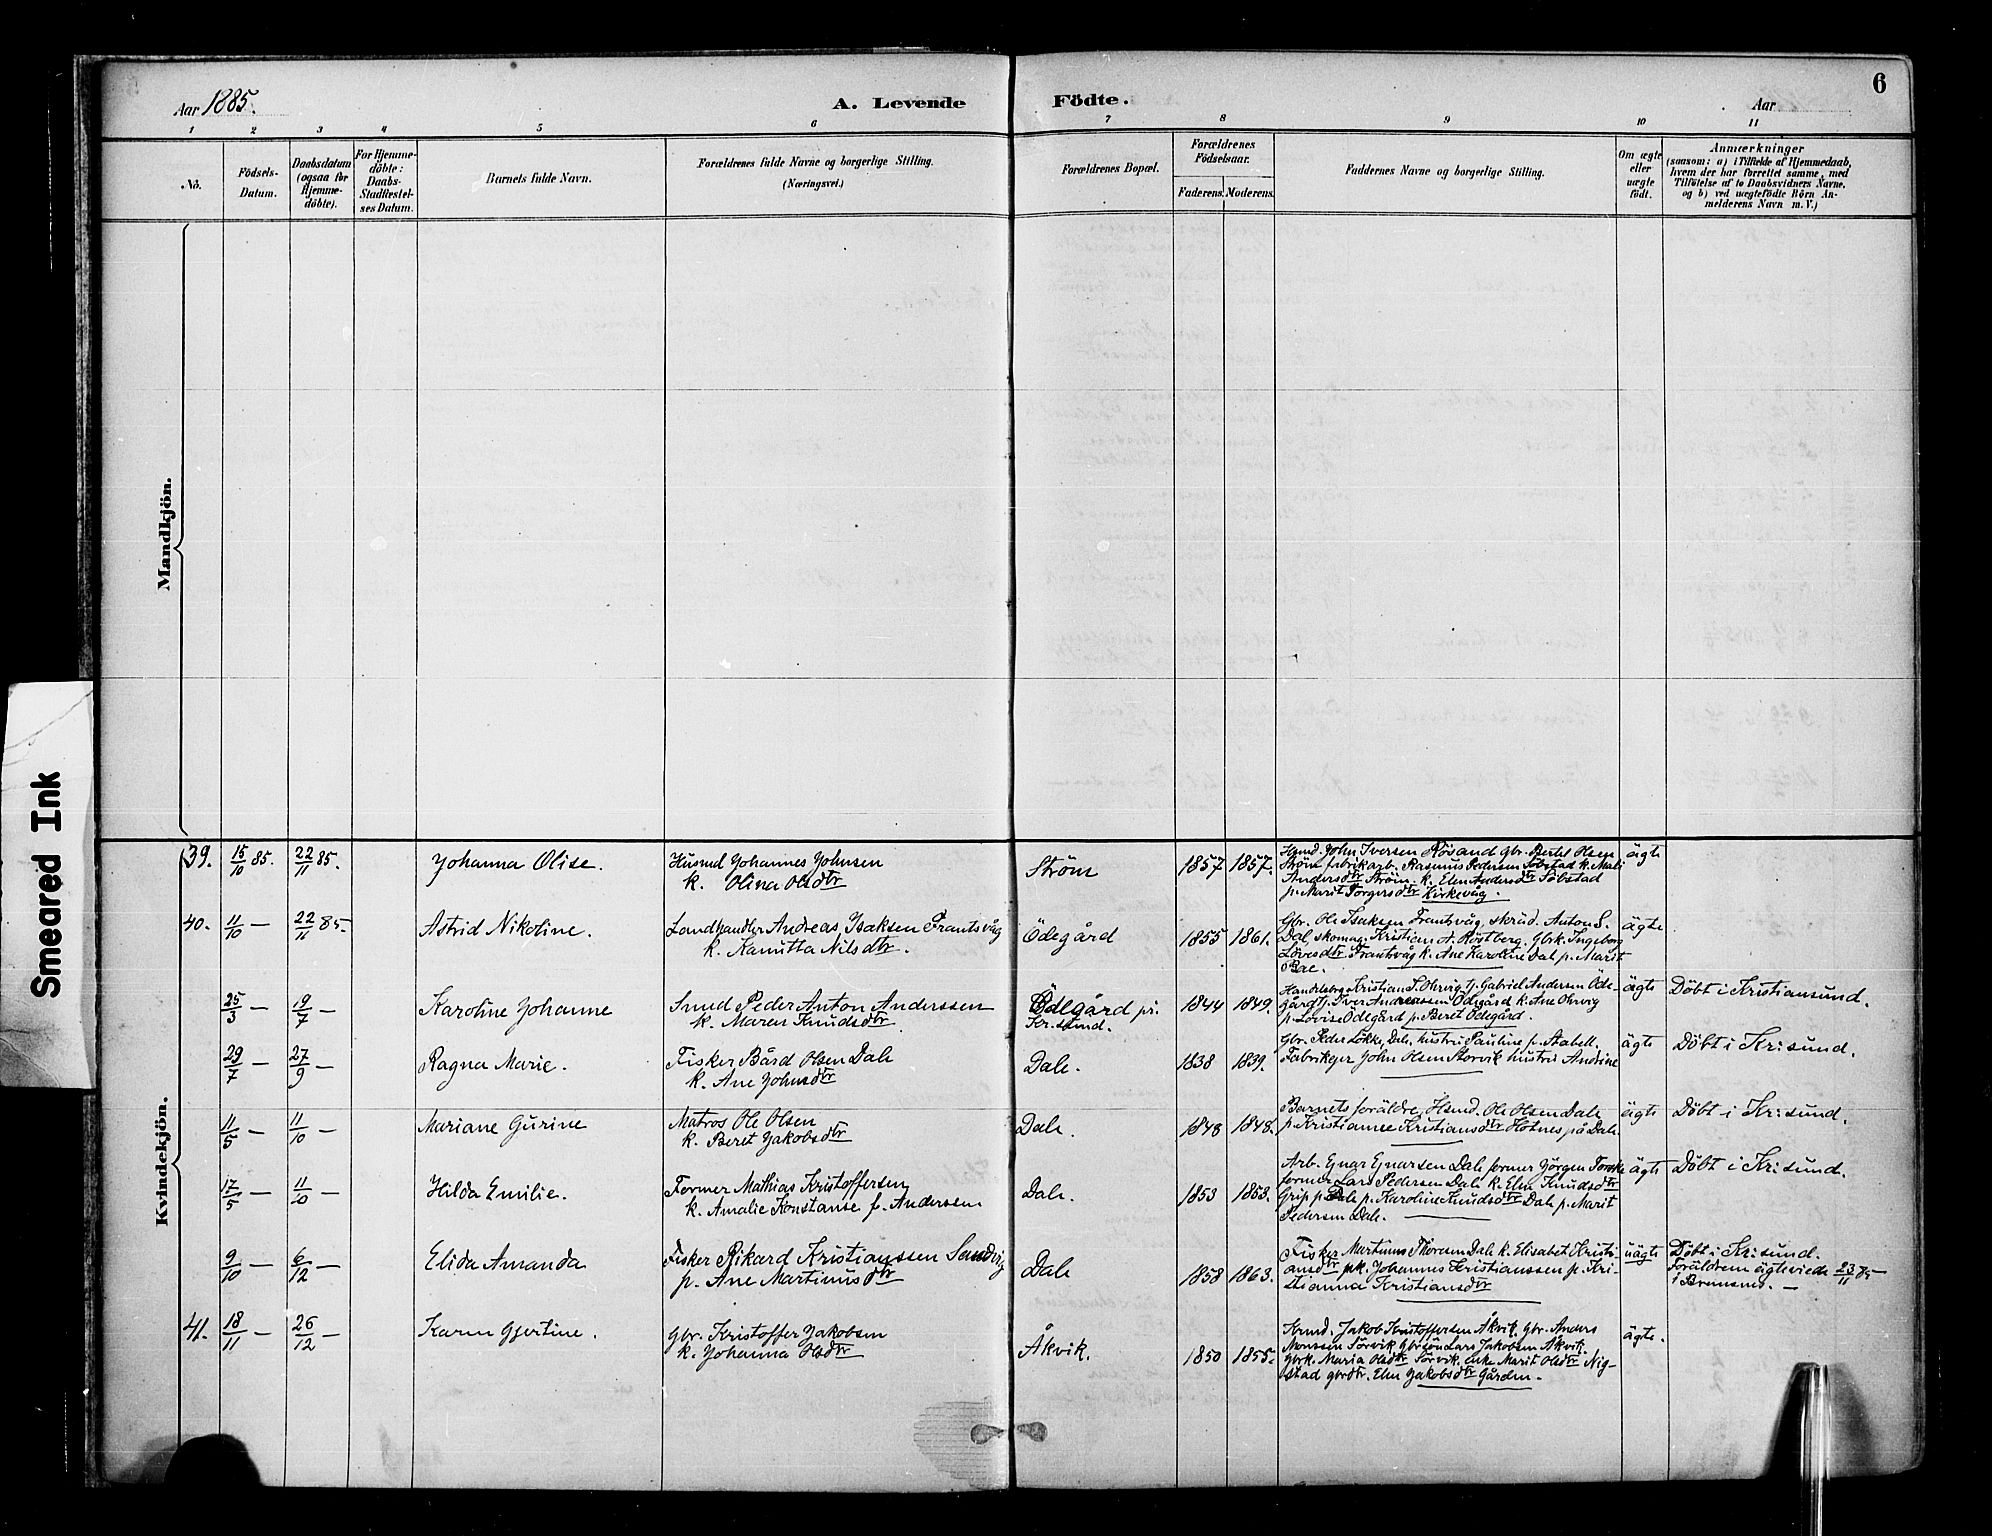 Aar 1885.
A. Levende Födte.
Aar
6
1 2 3 4 5 6 7 8 9 10 11
No.
Födsels-
Datum.
Daabsdatum
(ogsaa for
Hjemme-
döbte).
For Hjemme-
döbte:
Daabs-
Stadfæstel-
ses Datum.
Barnets fulde Navn.
Forældrenes fulde Navne og borgerlige Stilling.
(Næringsvei.)
Forældrenes Bopæl.
Forældrenes
Födselsaar.
Faderens. Moderens.
Faddernes Navne og borgerlige Stilling.
Om ægte
eller
uægte
födt.
Anmærkninger
(saasom: a) i Tilfælde af Hjemmedaab,
hvem der har forrettet samme, med
Tilföielse af to Daabsvidners Navne,
og b) ved uægtefödte Börn An-
melderens Navn m. V.)
Mandkjön.
Smeared Ink
Kvindekjön.
39. 15/10 85. 22/11 85. Johanna Olise.
Husmd Johannes Johnsen
k. Olina Olsdtr
Ström 1857 1857.
Husmd. John Iversen Rösand Gbr. Bertel Olsen
Ström fabrikarb. Rasmus Pedersen Söbstad k. Mali
Andersdtr Ström k. Elen Andersdtr Söbstad
p. Marit Torgersdtr Kirkevåg.
ägte
40. 11/10 — 22/11 85. Astrid Nikoline.
Landhandler Andreas Isaksen Frantsvåg
k. Kanutta Nilsdtr.
Ödegård 1855 1861.
Gbr. Ole Isaksen Frantsvåg, skräd. Anton S.
Dal, skomag. Kristian A. Röstberg. Gbrk. Ingeborg
Lövesdtr Frantsvåg k. Ane Karoline Dal p. Marit
Bae.
ägte
25/3 — 19/7 — Karoline Johanne
Smed Peder Anton Anderssen
k. Maren Knudsdtr.
Ödegård pr.
Kr.sund.
1844 1849.
Handelsbg. Kristian S. Ohrvig Tj. Gabriel Andersen Öde-
gård Tj. Iver Andreassen Ödegård k. Ane Ohrvig
p. Lovise Ödegård p. Beret Ödegård.
ägte Döbt i Kristiansund.
29/7 — 27/9 — Ragna Marie.
Fisker Bård Olsen Dale
k. Ane Johnsdtr
Dale. 1838 1839.
Gbr. Peder Lökke, Dale, hustru Pauline f. Stabell.
Fabrikejer John Olsen Storvik hustru Andrine
ägte Döbt i Kr:sund.
11/5 — 11/10 — Mariane Gurine
Matros Ole Olsen
k. Beret Jakobsdtr
Dale. 1848 1848.
Barnets foräldre, Hsmd. Ole Olsen Dale
p. Kristianne Kristiansdtr Hotnes på Dale.
ägte Döbt i Kr:sund.
17/5 — 11/10 — Hilda Emilie.
Former Mathias Kristoffersen
k. Amalie Konstanse f. Andersen.
Dale. 1853 1853.
Arb. Ejnar Ejnarsen Dale former Jörgen Torske
former Lars Pedersen Dale k. Elen Knudsdtr
Grip p Dale p. Karoline Knudsdtr Dale p. Marit
Pedersen Dale.
ägte Döbt i Kr:sund.
9/10 — 6/12 — Elida Amanda
Fisker Rikard Kristianssen Sandvig
p. Ane Martinusdtr
Dale 1858 1863.
Fisker Martinus Thoresen Dale k. Elisabet Kristi-
ansdtr pk. Johannes Kristianssen p. Kri-
stianna Kristiansdtr
uägte Döbt i Kr:sund.
Foräldrene ägteviede 23/11 85
i Bremsnes. —
41. 18/11 — 26/12 — Karen Gjertine.
Gbr. Kristoffer Jakobsen
k. Johanna Olsdtr
Åkvik. 1850 1855.
Krmd. Jakob Kristoffersen Åkvik, Gbr. Anders
Monssen Sörvik Gbrsön Lars Jakobsen Åkvik,
Gbrk. Maria Olsdtr Sörvik, enke Marit Olsdtr Nig-
stad gbrdtr. Elen Jakobsdtr Gården.
ägte.